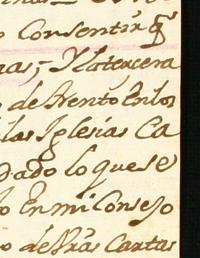 o Consentir q
nas; Ylatercera
o de trento Enlos
las Iglesias Ca
dado lo que se
o En mi Consejo
o de Vras Cartas